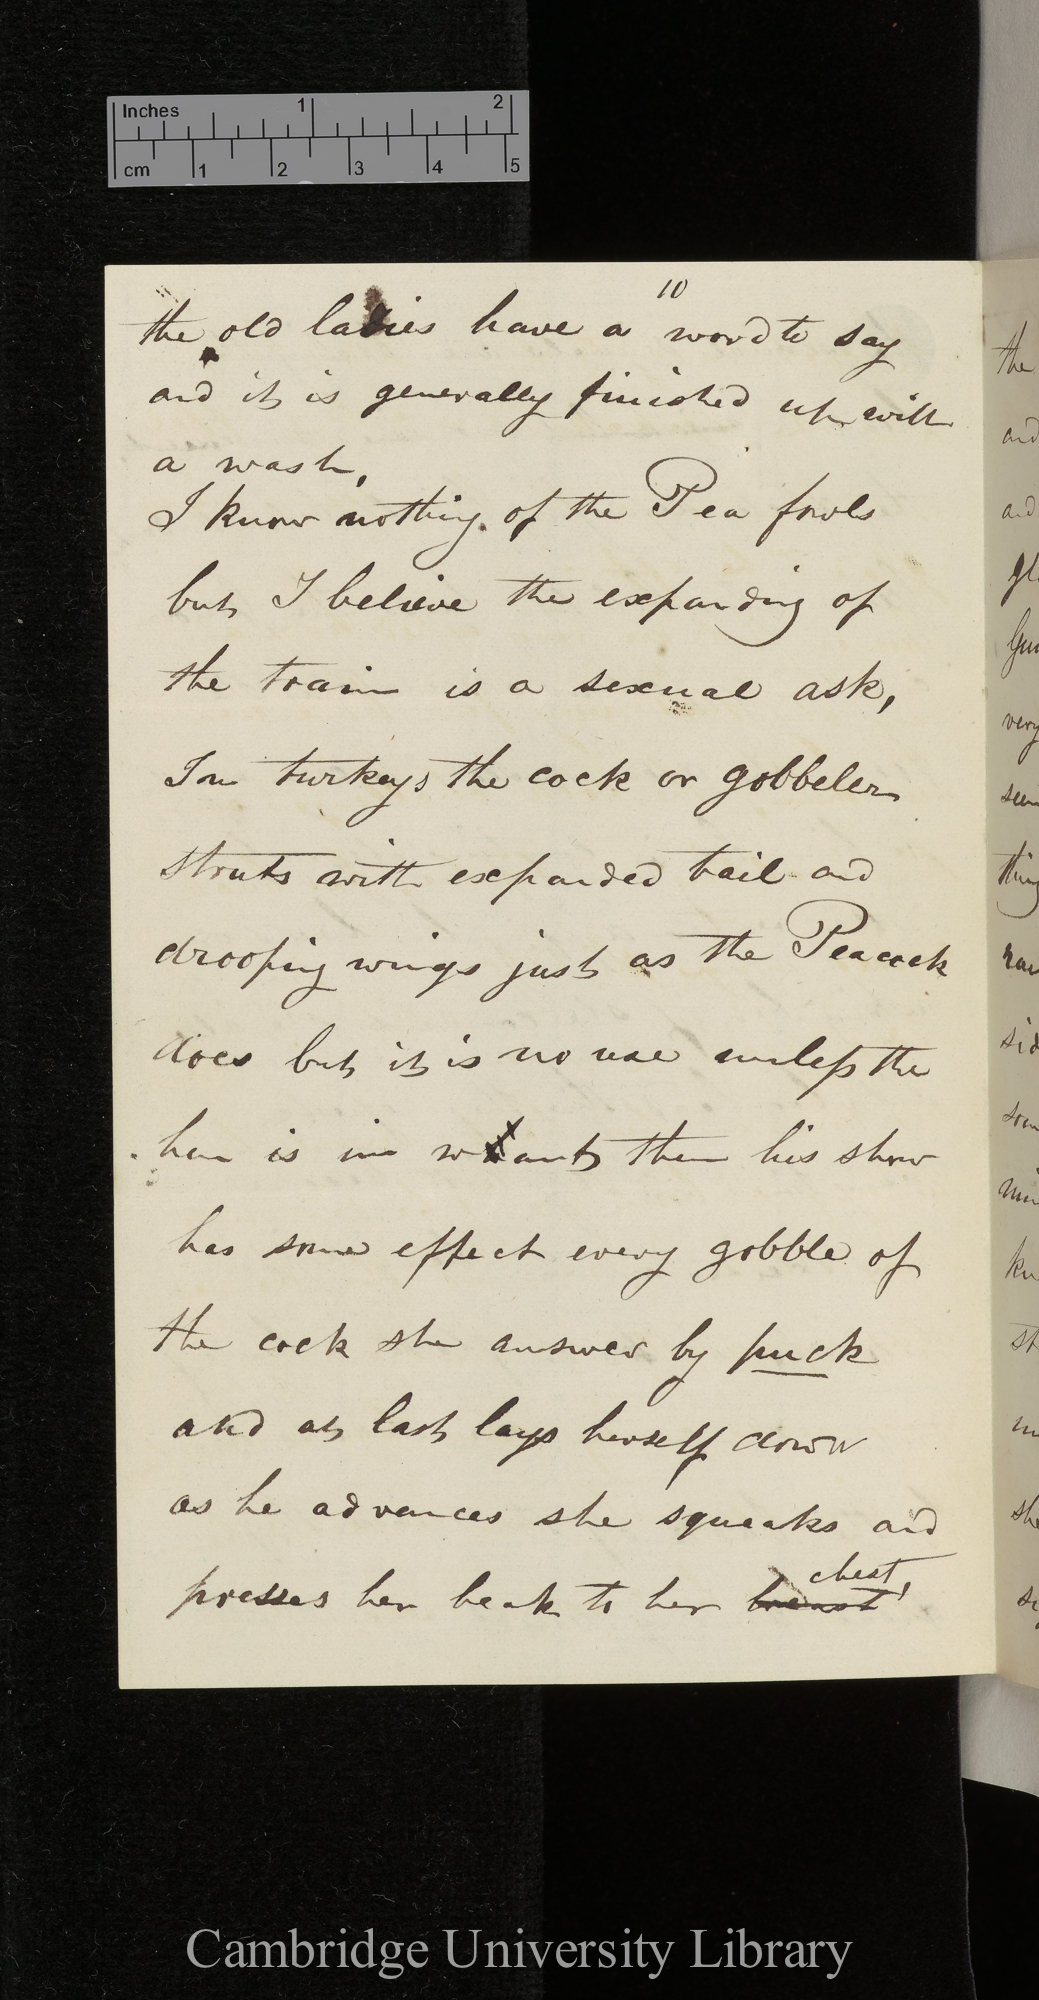 Inches 1 2
cm 1 2 3 4 5
10
the old ladies have a word to say
and it is generally finished up with
a wash,
I know nothing of the Pea fowls
but I believe the expanding of
the train is a sexual ask,
In turkeys the cock or gobbeler
struts with expanded tail and
drooping wings just as the Peacock
does but it is no use unless the
hen is in want then his show
has some effect every gobble of
the cock she answer by puck
and at last lays herself down
as he advances she squeaks and
chest,
presses her beak to her breast
the
and
and
very
thing
she
Cambridge University Library